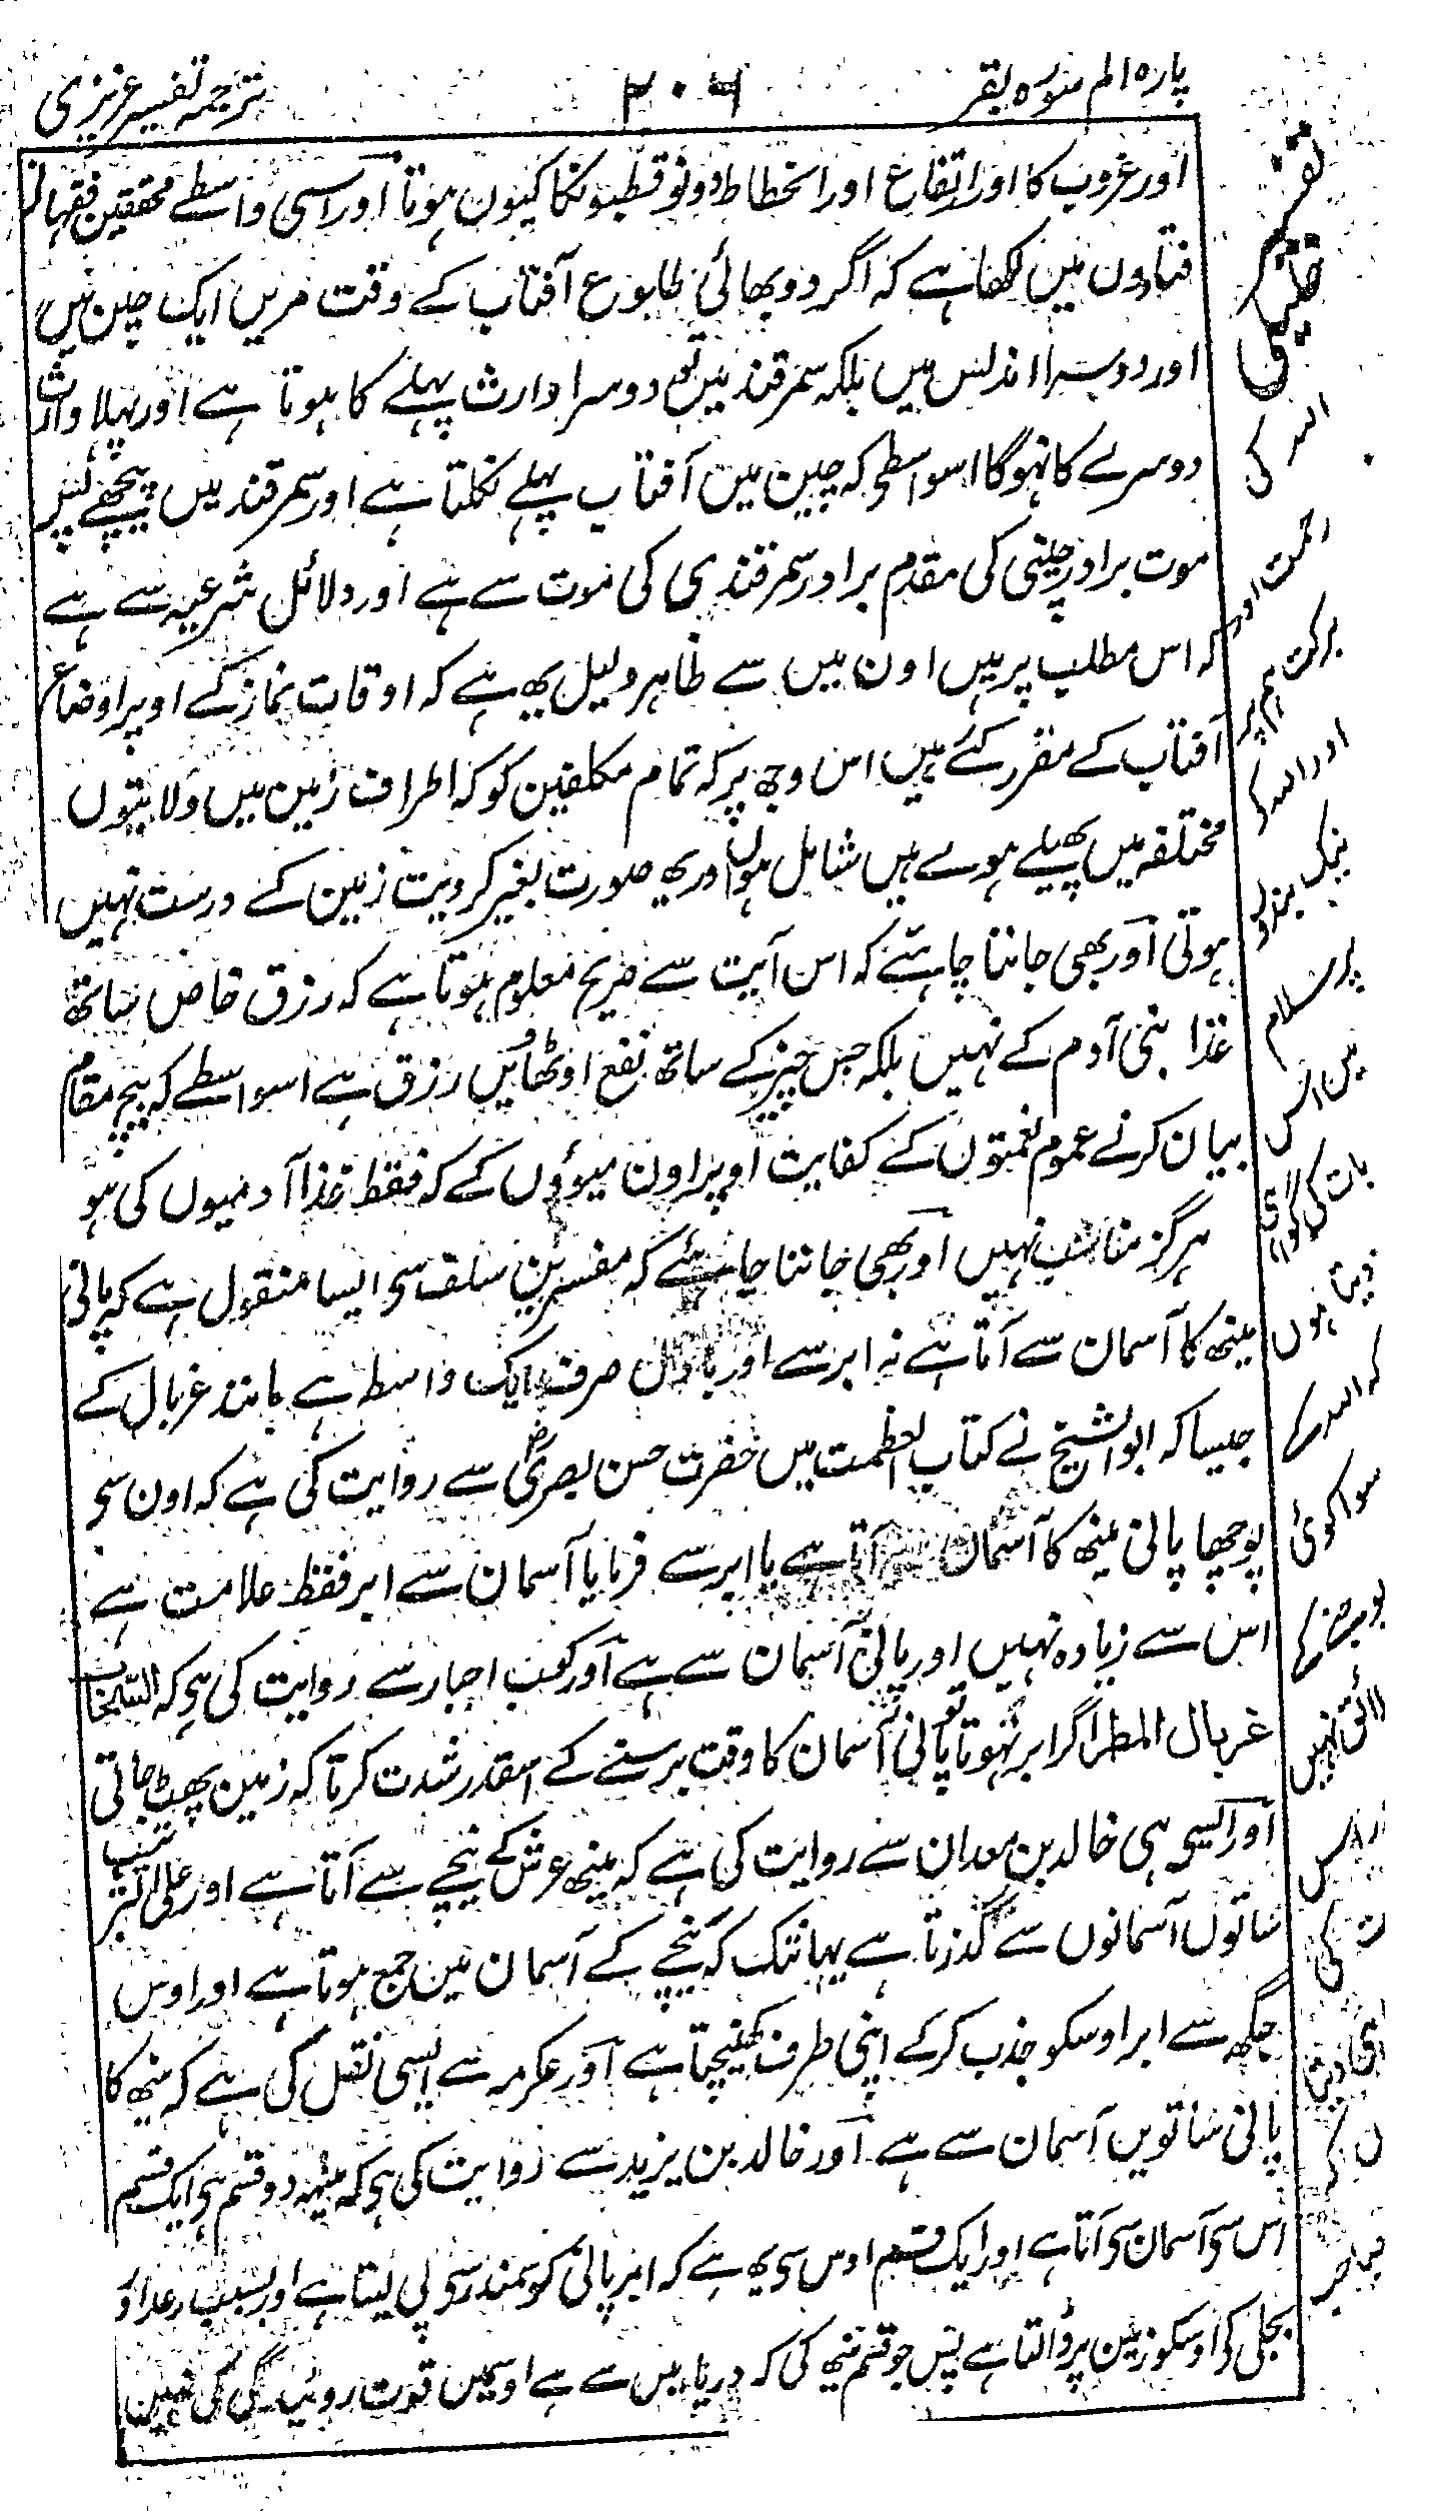 پارہ الم سورہ بقر
۲۰۶
ترجمہ تفسیر عزیزی
اور غروب کا اور ارتفاع اور انحطاط دونو قطبونکا کیون ہوتا اور اسی واسطے محققین فقہا نے
فتاوون مین لکھا ہے کہ اگر دو بھائی طلوع آفتاب کے وقت مریں ایک چین میں
اور دوسرا اندلس میں بلکہ سمرقند میں تو دوسرا وارث پہلے کا ہوتا ہے اور پہلا وارث
دوسرے کا نہوگا اسواسطی کہ چین مین آفتاب پہلے نکلتا ہے اور سمرقند میں پیچھے پس
موت برادر چینی کی مقدم برادر سمرقندی کی موت سے ہے اور دلائل شرعیہ سے ہے
کہ اس مطلب پر ہیں اون میں سے ظاہر دلیل یہ ہے کہ اوقات نماز کے اوپر اوضاع
آفتاب کے مقرر کئے ہیں اس وجہ پر کہ تمام مکلفین کو کہ اطراف زمین میں ولایتوں
مختلفہ میں پھیلے ہوے ہیں شامل ہوں اور یہ صورت بغیر کرویت زمین کے درست نہیں
ہوتی اور بھی جاننا چاہئے کہ اس آیت سے صریح معلوم ہوتا ہے کہ رزق خاص ساتھ
غذا بنی آدم کے نہیں بلکہ جس چیز کے ساتھ نفع اوٹھائیں رزق ہے اسواسطے کہ بیچ مقام
بیان کرنے عموم نعمتوں کے کفایت اوپر اون میوؤں کے کہ فقط غذا آدمیوں کی ہو
ہرگز مناسب نہیں اور بھی جاننا چاہئے کہ مفسرین سلف سی ایسا منقول ہے کہ پانی
مینھ کا آسمان سے آتا ہے نہ ابر سے اور بادل صرف ایک واسطہ ہے مانند غربال کے
جیسا کہ ابو الشیخ نے کتاب العظمت میں حضرت حسن بصری سے روایت کی ہے کہ اون سی
پوچھا پانی مینھ کا آسمان سے آتا ہے یا ابر سے فرمایا آسمان سے ابر فقط علامت ہے
اس سے زیادہ نہیں اور پانی آسمان سے ہے اور کعب احبار سے روایت کی ہی کہ السحاب
غربال المطر اگر ابر نہوتا تو پانی آسمان کا وقت برسنے کے اسقدر شدت کرتا کہ زمین پھٹ جاتی
اور ایسی ہی خالد بن معدان سے روایت کی ہے کہ مینھ عرش کے نیچے سے آتا ہے اور علی الترتیب
ساتوں آسمانوں سے گذرتا ہے یہانتک کہ نیچے کے آسمان مین جمع ہوتا ہے اور اوس
جگھ سے ابر اوسکو جذب کر کے اپنی طرف کھینچتا ہے اور عکرمہ سے ایسی نقل کی ہے کہ مینھ کا
پانی ساتویں آسمان سے ہے اور خالد بن یزید سے روایت کی ہی کہ مینھ دو قسم ہی ایک قسم
اس سی آسمان سی آتا ہے اور ایک قسم اوس سی یہ ہے کہ ابر پانی کو سمندر سی پی لیتا ہے اور بسبب رعد اور
بجلی کی اوسکو زمین پر ڈالتا ہے پس جو قسم مینھ کی کہ دریا میں سے ہے اوسمین قوت روئیدگی کی نہین
اللہ کی
رحمت اور
برکت ہم پر
اور اللہ کے
نیک بندو
پر سلام
میں اس
بات کی گواہی
دیتا ہوں
کہ اللہ کے
سوا کوئی